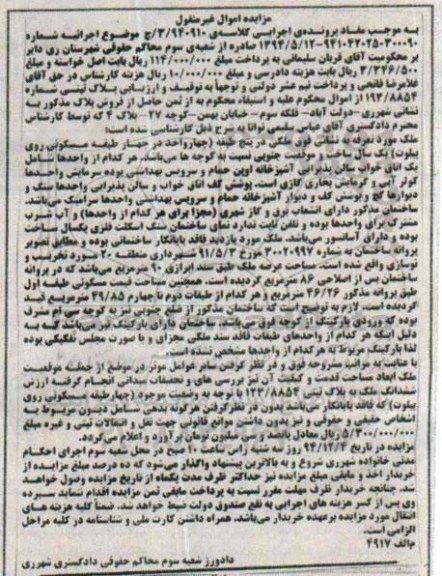 مزایده اموال غیرمنقول
به موجب مفاد پرونده‌ی اجرایی کلاسه‌ی ۳/۹۴۰۹۱۰/ج موضوع اجرائیه شماره
۹۴۱۰۴۲۰۲۵۳۰۰۰۹۰-۱۳۹۴/۵/۱۲ صادره از شعبه‌ی سوم محاکم حقوقی شهرستان ری دایر
بر محکومیت آقای قربان سلیمانی به پرداخت مبلغ ۱۱۴/۰۰۰/۰۰۰ ریال بابت اصل خواسته و مبلغ
۳/۳۴۶/۵۰۰ ریال بابت هزینه دادرسی و مبلغ ۱۰/۰۰۰/۰۰۰ ریال هزینه کارشناس در حق آقای
غلامرضا فاتحی و پرداخت نیم عشر دولتی و توجهاً به توقیف و ارزیابی پلاک ثبتی شماره
۱۹۳/۸۸۵۴ از اموال محکوم علیه و استیفاء محکوم به از ثمن حاصل از فروش پلاک مذکور به
نشانی شهرری-دولت آباد- فلکه سوم- خیابان بهمن-کوچه ۲۷- پلاک ۴ که توسط کارشناس
محترم دادگستری آقای عباس سلیمی توانا به شرح ذیل کارشناسی شده است:
ملک مورد تعرفه به نشانی فوق ملکی در پنج طبقه (چهارواحد در چهار طبقه مسکونی روی
پیلوت) یک سال ساخت و موقعیت جنوبی نسبت به کوچه ها می‌باشد. هر کدام از واحدها شامل
یک اتاق خواب سالن پذیرایی آشپزخانه اوپن حمام و سرویس بهداشتی بوده سرمایش واحدها
کولر آبی و گرمایش بخاری گازی است. پوشش کف اتاق خواب و سالن پذیرایی واحدها سنگ و
دیوارها گچ و پوشش کف و دیوار آشپزخانه حمام و سرویس بهداشتی واحدها سرامیک می‌باشد.
ساختمان مذکور دارای انشعاب برق و گاز شهری (مجزا برای هر کدام از واحدها) و آب شرب
مشترک برای واحدها بوده و تلفن ثابت ندارد نمای ساختمان سنگ اسکلت فلزی یکسال ساخت
بوده و دارای آسانسور می‌باشد. ملک مورد بازدید فاقد پایانکار ساختمانی بوده و مطابق تصویر
پروانه ساختمان به شماره ۳۰۰۲۰۹۹۷ مورخ ۹۱/۵/۳ شهرداری منطقه ۲۰ مورد تخریب و
نوسازی واقع شده است. مساحت عرصه ملک طبق سند ابرازی ۹۰ مترمربع می‌باشد که در پروانه
ساختمان پس از اصلاحی ۸۶ مترمربع گردیده است. همچنین مساحت قیمت مسکونی طبقه اول
طبق پروانه مذکور ۴۶/۲۶ مترمربع و هر کدام از طبقات دوم تا چهارم ۴۹/۸۵ مترمربع قید
گردیده است. لازم به توضیح است که ساختمان مذکور از ضلع جنوبی نیز به کوچه سی ام مشرف
بوده که ورودی پارکینگ از کوچه فوق می‌باشد. ساختمان دارای پارکینگ نیز می‌باشد که به
دلیل اینکه هر کدام از واحدهای طبقات فاقد سند ملکی مجزای و یا صورت مجلس تفکیکی بوده
لذا پارکینگ مربوط به هر کدام از واحدها مشخص نشده است.
با عنایت به مراتب مشروحه فوق و در نظر گرفتن سایر عوامل موثر در موضع از جمله موقعیت
ملک ابعاد مساحت قدمت و کیفیت آن نیز بررسی های و تحقیقات میدانی انجام گرفته ارزش
ششدانگ ملک به پلاک ثبتی ۱۲۳/۸۸۵۴ با توجه به وضعیت موجود (چهارطبقه مسکونی روی
پیلوت) که فاقد پایانکار می‌باشد بدون در نظر گرفتن هرگونه بدهی شامل دیون مربوط به
اشخاص حقیقی و حقوقی و نیز بدون داشتن موانع قانونی جهت نقل و انتقالات ثبتی و غیره مبلغ
۵/۳۰۰/۰۰۰/۰۰۰ ریال معادل پانصد و سی میلیون تومان برآورد و اعلام می‌گردد.
مزایده در تاریخ ۹۴/۱۲/۴ روز سه شنبه راس ساعت ۱۰ صبح در محل شعبه سوم اجرای احکام
مدنی خانواده شهرری شروع و به بالاترین پیشنهاد واگذار می‌شود که ده درصد مبلغ مزایده از
خریدار اخذ و مابقی مبلغ مزایده نیز حداکثر ظرف مدت یکماه از تاریخ مزایده وصول خواهد
شد. چنانچه خریدار ظرف مهلت مقرر نسبت به پرداخت مابقی ثمن مزایده اقدام ننماید سپرده
وی پس از کسر هزینه های اجرایی به نفع صندوق دولت ضبط خواهد شد. ضمناً کلیه هزینه های
انتقال مورد مزایده برعهده خریدار می‌باشد. همراه داشتن کارت ملی و شناسنامه در کلیه مراحل
الزامی است.
م‌الف ۴۹۱۷
دادورز شعبه سوم محاکم حقوقی دادگستری شهرری